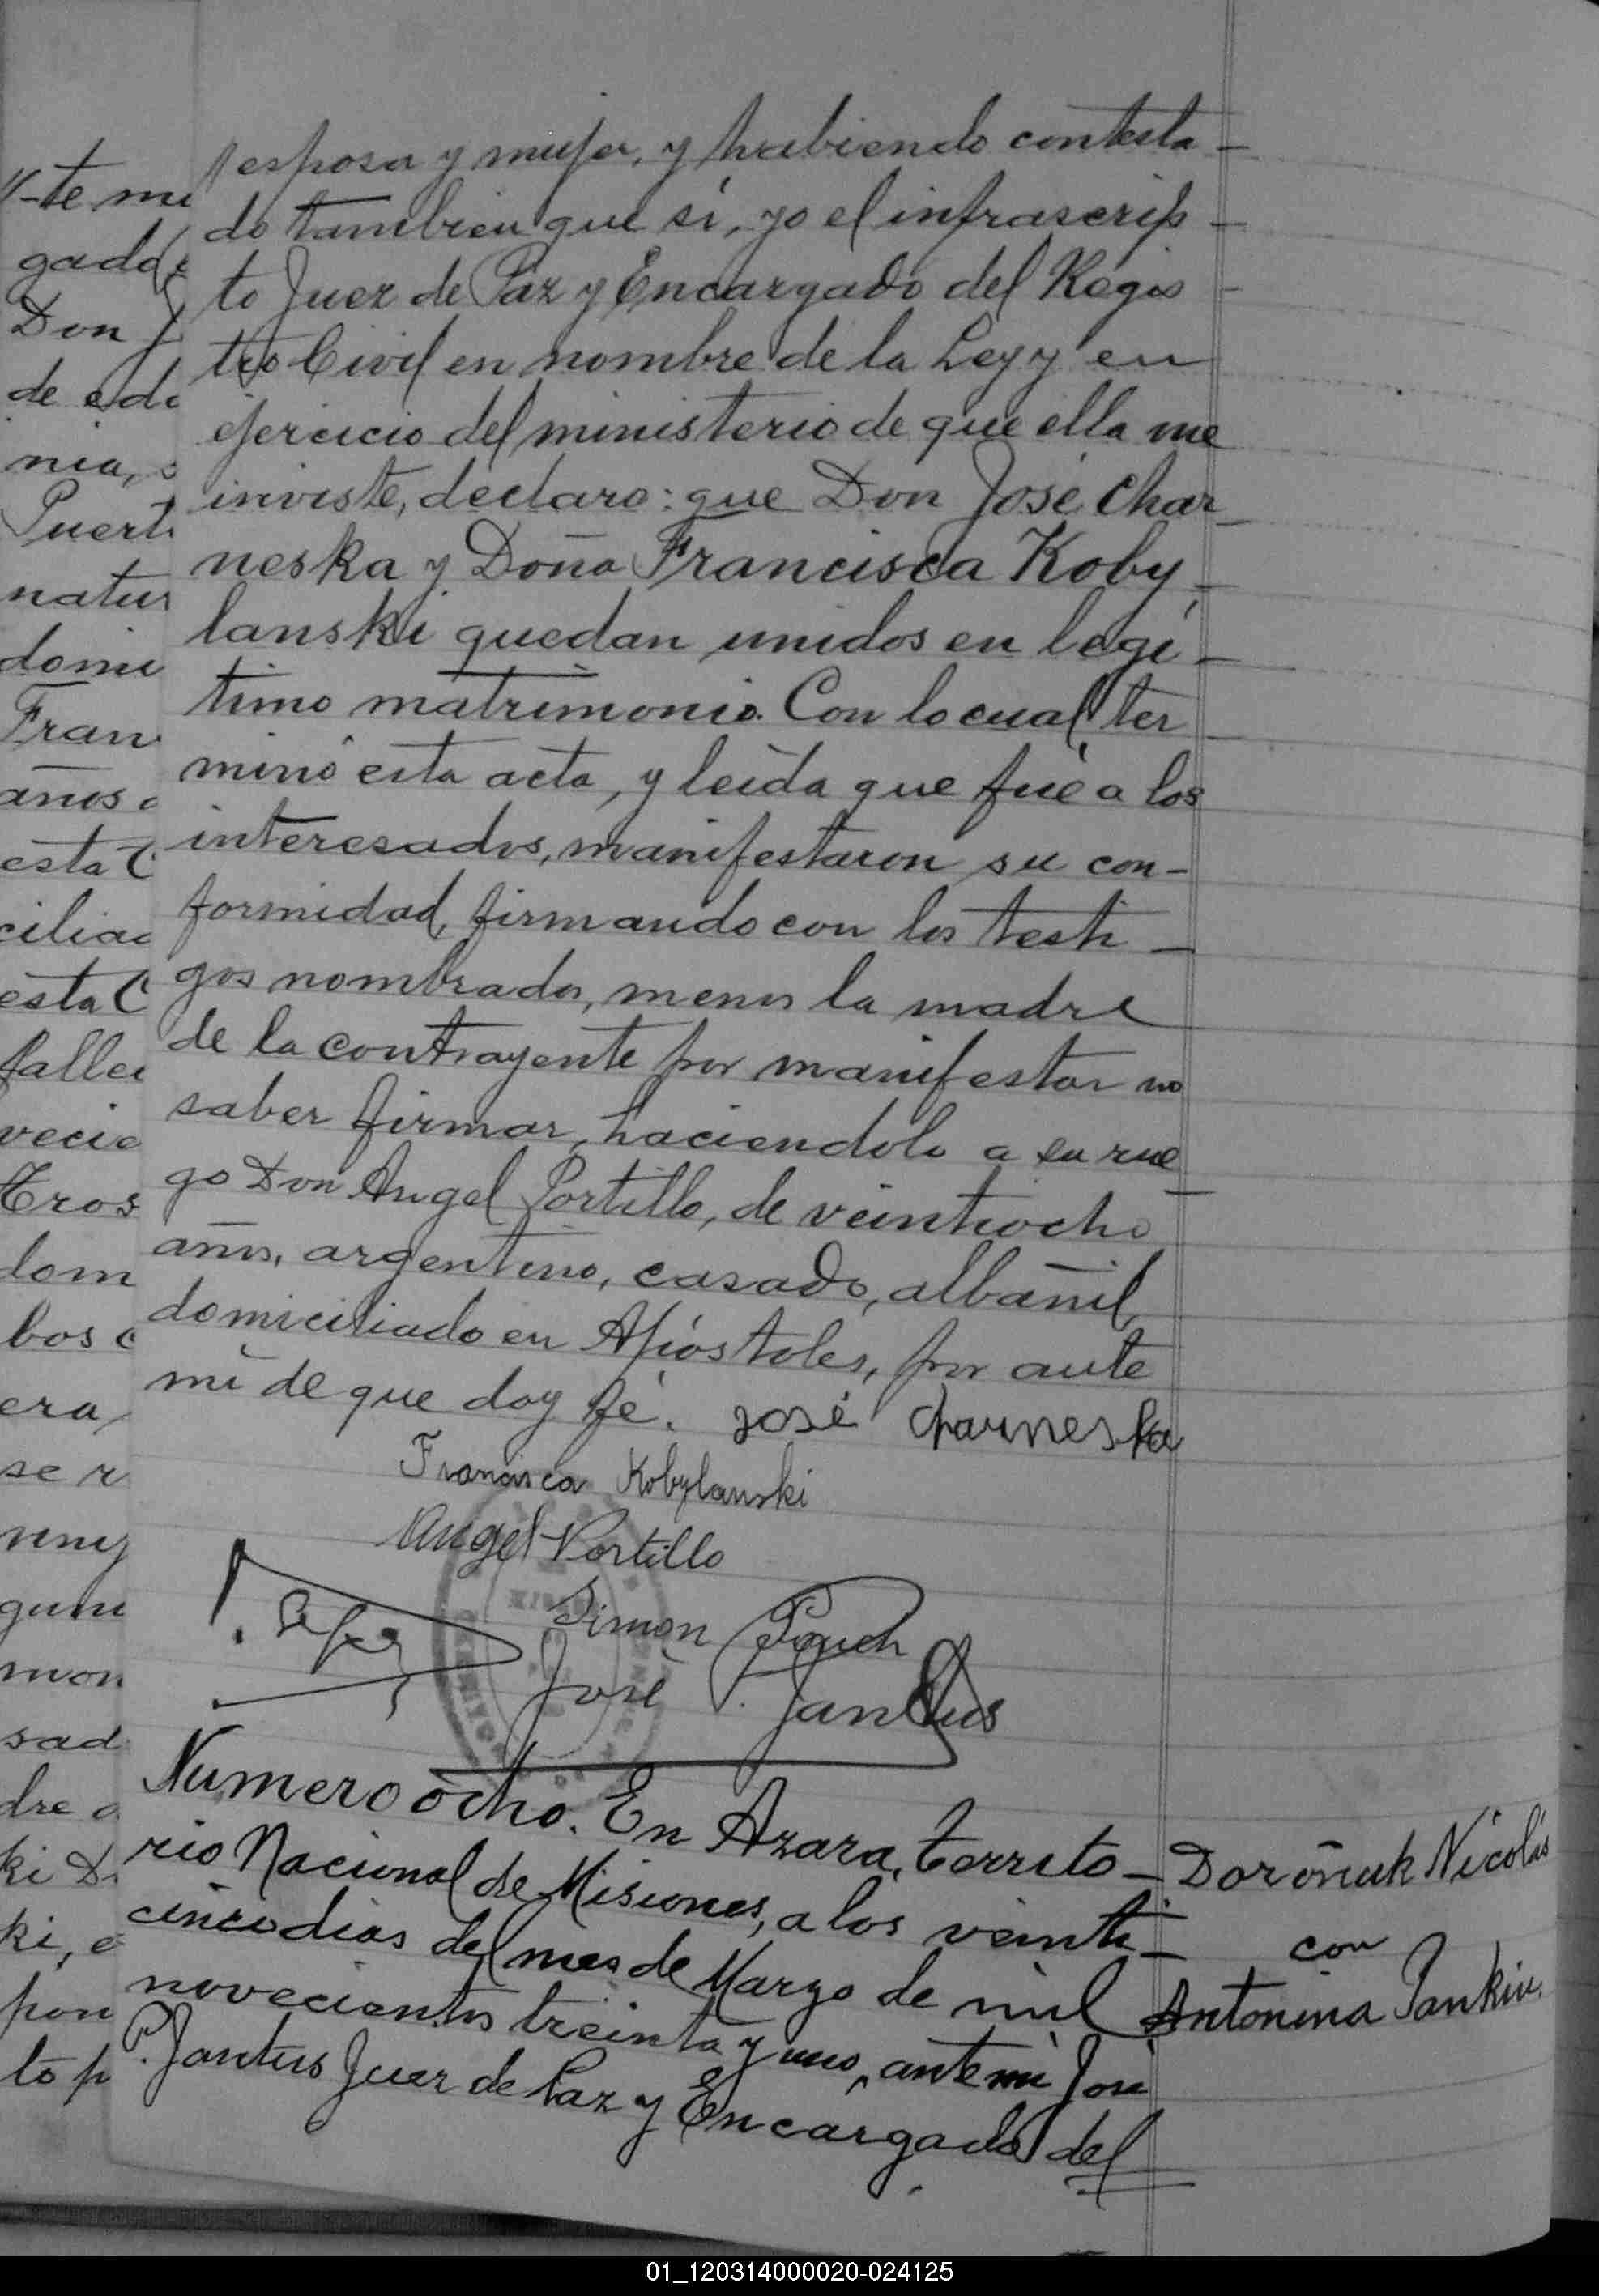 esposa y mujer, y habiendo contesta-
do tambien que sí, yo el infrascrip-
to Juez de Paz y Encargado del Regis-
tro Civil en nombre de la Ley y en
ejercicio del ministerio de que ella me
inviste, declaro: que Don José Char-
neska y Doña Francisca Koby-
lanski quedan unidos en legí-
timo matrimonio. Con lo cual ter-
minó esta acta, y leída que fué a los
interesados, manifestaron su con-
formidad, firmando con los testi-
gos nombrados, menos la madre
de la contrayente por manifestar no
saber firmar, haciendolo a su rue-
go Don Angel Portillo, de veintiocho
años, argentino, casado, albañil,
domiciliado en Apóstoles, por ante
mi de que doy fé. José Charneska
Francisca Kobylanski
Angel Portillo
Simon
José P. Jantus
Numero ocho. En Azara, Territo-
rio Nacional de Misiones, a los veinti-
cinco dias del mes de Marzo de mil
novecientos treinta y uno, ante mi José
P. Jantus Juez de Paz y Encargado del
Doroñuk Nicolás
con
Antonina Pankiw.
-te mu
gado
Don J
de eda
nia, s
Puert
natur
domi
Fran
años
esta C
cilia
esta C
falle
vecie
tros
dom
bos
era,
se r
mon
sad
dre a
ki D
ki, e
pon
to p
01_120314000020-024125